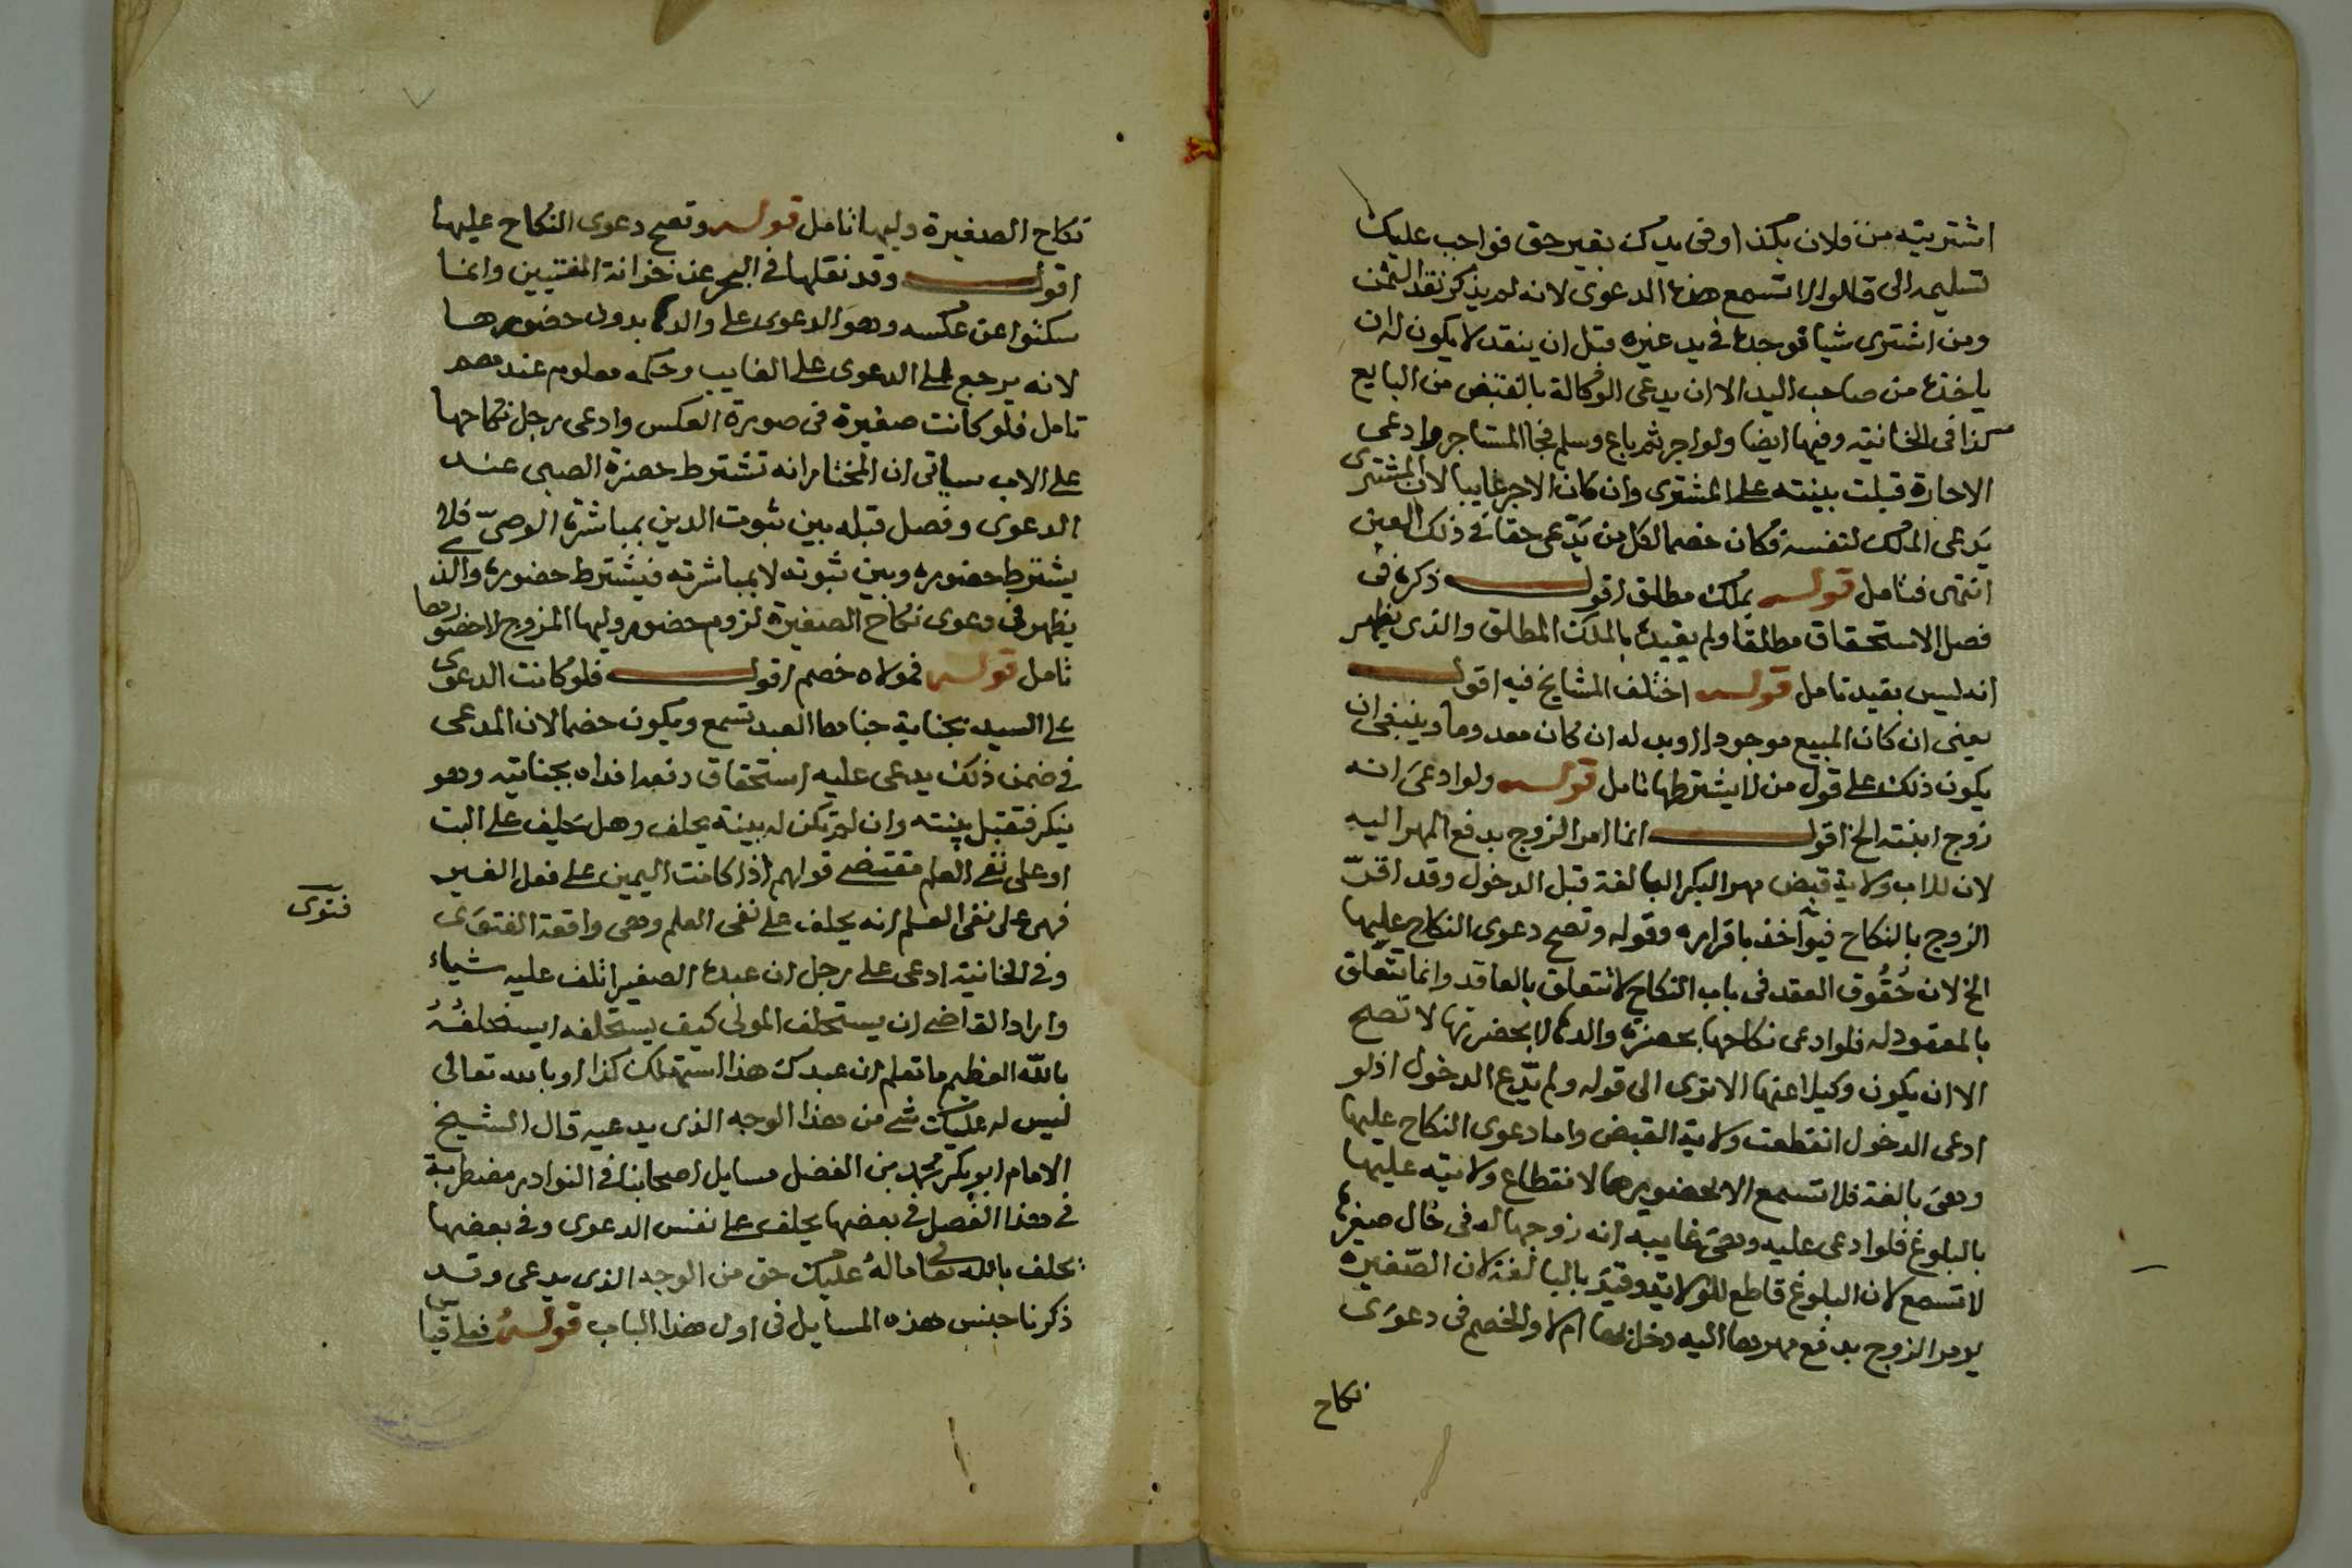 اشتريته من فلان بكذا وفى يدك بغير حق فواجب عليك
تسليمه الى قالوا لا تسمع هذه الدعوى لانه لم يذكر نقد الثمن
ومن اشترى شيا فوجده فى يد غيره قبل ان ينقد لا يكون له ان
ياخذه من صاحب اليد الا ان يدعى الوكالة بالقبض من البايع
كذا فى الخانية وفيها ايضا ولو اجر ثم باع وسلم فجا المستاجر وادعى
الاجارة قبلت بينته على المشترى وان كان الاجر غايبا لان المشترى
يدعى الملك لنفسه فكان خصما لكل من يدّعى حقا فى ذلك العين
انتهى فتامل قوله بملك مطلق اقول ذكره فى
فصل الاستحقاق مطلقا ولم يقيده بالملك المطلق والذى يظهر
انه ليس بقيد تامل قوله اختلف المشايخ فيه اقول
يعنى ان كان المبيع موجودا او بدله ان كان معدوما وينبغى ان
يكون ذلك على قول من لا يشترطها تامل قوله ولو ادعى انه
زوج ابنته الخ اقول انما امر الزوج بدفع المهر اليه
لان للاب ولاية قبض مهر البكر البالغة قبل الدخول وقد اقرّ
الزوج بالنكاح فيوآخذ باقراره وقوله وتصح دعوى النكاح عليها
الخ لان حُقُوق العقد فى باب النكاح لا تتعلق بالعاقد وانما تتعلق
بالمعقود له فلو ادعى نكاحها بحضرة والدها لا بحضرتها لا تصح
الا ان يكون وكيلا عنها الا ترى الى قوله ولم يدّع الدخول اذ لو
ادعى الدخول انقطعت ولاية القبض واما دعوى النكاح عليها
وهى بالغة فلا تسمع الا بحضورها لانقطاع ولايته عليها
بالبلوغ فلو ادعى عليه وهى غايبه انه زوجها له فى حال صغرها
لا تسمع لان البلوغ قاطع للولاية وقيد بالبالغة لان الصّغيرة
يومر الزوج بدفع مهرها اليه دخل بها ام لا والخصم فى دعوى
نكاح
نكاح الصغيرة وليها تامل قوله وتصح دعوى النكاح عليها
اقول وقد نقلها فى البحر عن خزانة المفتيين وانما
سكتوا عن عكسه وهو الدعوى على والدها بدون حضورها
لانه يرجع الى الدعوى على الغايب وحكمه معلوم عندهم
تامل فلو كانت صغيرة فى صورة العكس وادعى رجل نكاحها
على الاب سياتى ان المختار انه تشترط حضرة الصبى عند
الدعوى وفصل قبله بين ثبوت الدين بمباشرة الوصىّ فلا
يشترط حضوره وبين ثبوته لا بمباشرته فيشترط حضوره والذى
يظهر فى دعوى نكاح الصغيرة لزوم حضور وليها المزوج لا حضورها
تامل قوله فمولاه خصم اقول فلو كانت الدعوى
على السيد بجناية جناها العبد تسمع ويكون خصما لان المدعى
فى ضمن ذلك يدعى عليه استحقاق دفعه او فداه بجنايته وهو
ينكر فتقبل بينته وان لم تكن له بينة يحلف وهل يحلف على البت
او على نفى العلم مقتضى قولهم اذا كانت اليمين على فعل الغير
فهى على نفى العلم انه يحلف على نفى العلم وهى واقعة الفتوَى
فتوى
وفى الخانية ادعى على رجل ان عبده الصغير اتلف عليه شياء
واراد القاضى ان يستحلف المولى كيف يستحلفه ايستحلفُهُ
بالله العظيم ما تعلم ان عبدك هذا استهلك كذا او بالله تعالى
ليس له عليك شى من هذا الوجه الذى يدعيه قال الشيخ
الامام ابو بكر محمد بن الفضل مسايل اصحابنا فى النوادر مضطربة
فى هذا الفصل فى بعضها يحلف على نفس الدعوى وفى بعضها
يحلف بالله تعالى ما لهُ عليك حق من الوجه الذى يدعى وقد
ذكرنا جنس هذه المسايل فى اول هذا الباب قوله